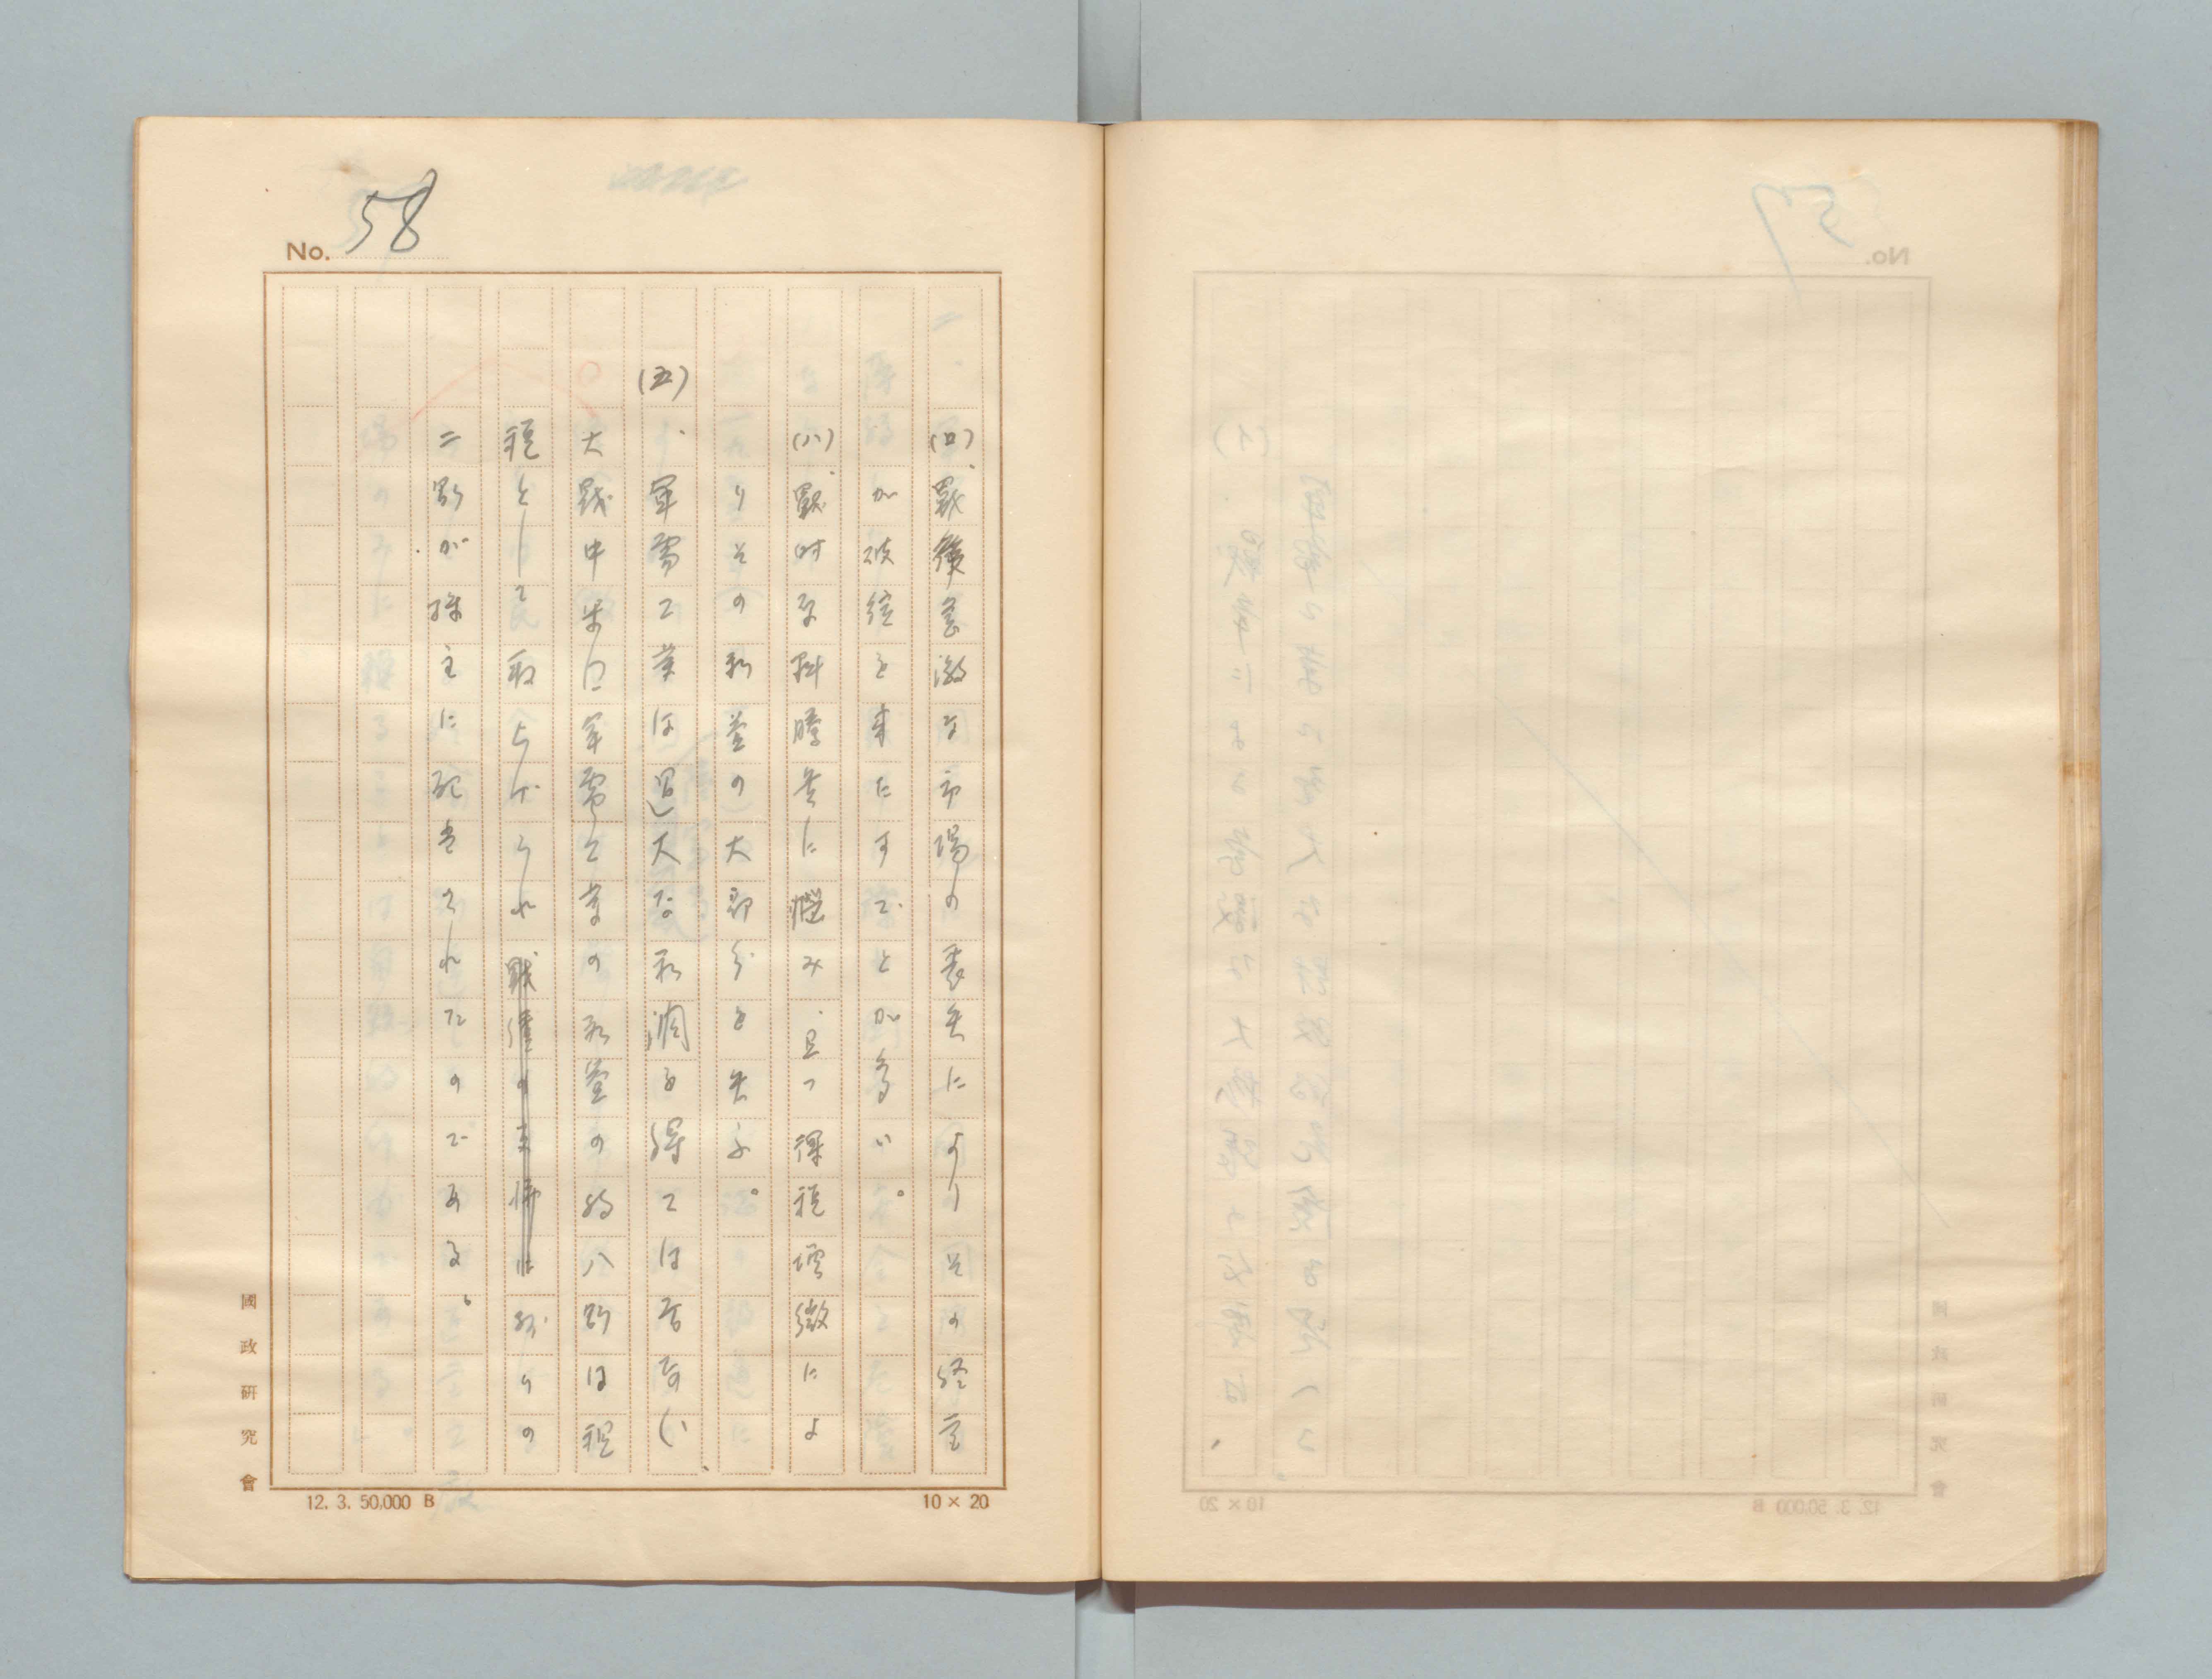 No. 58
(ロ)、戦後急激な市場の喪失によりその経営
が破綻を来たすことが多い。
(ハ)、戦時高騰に悩み、且つ得税増徴によ
りその利益の大部分を失ふ。
(五)、軍需工業は過大な利潤を得ては居ない、
大戦中米国軍需工業の利益の約八割は租
税として取上げられ残りの
二割が株主に配当されたのである。
國政研究會
12. 3. 50,000 B
10 × 20